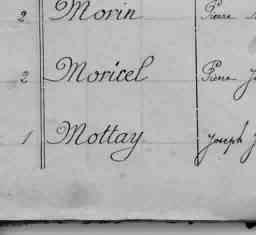 2 Morin Pierre
2 Moricel Pierre
1 Mottay Joseph